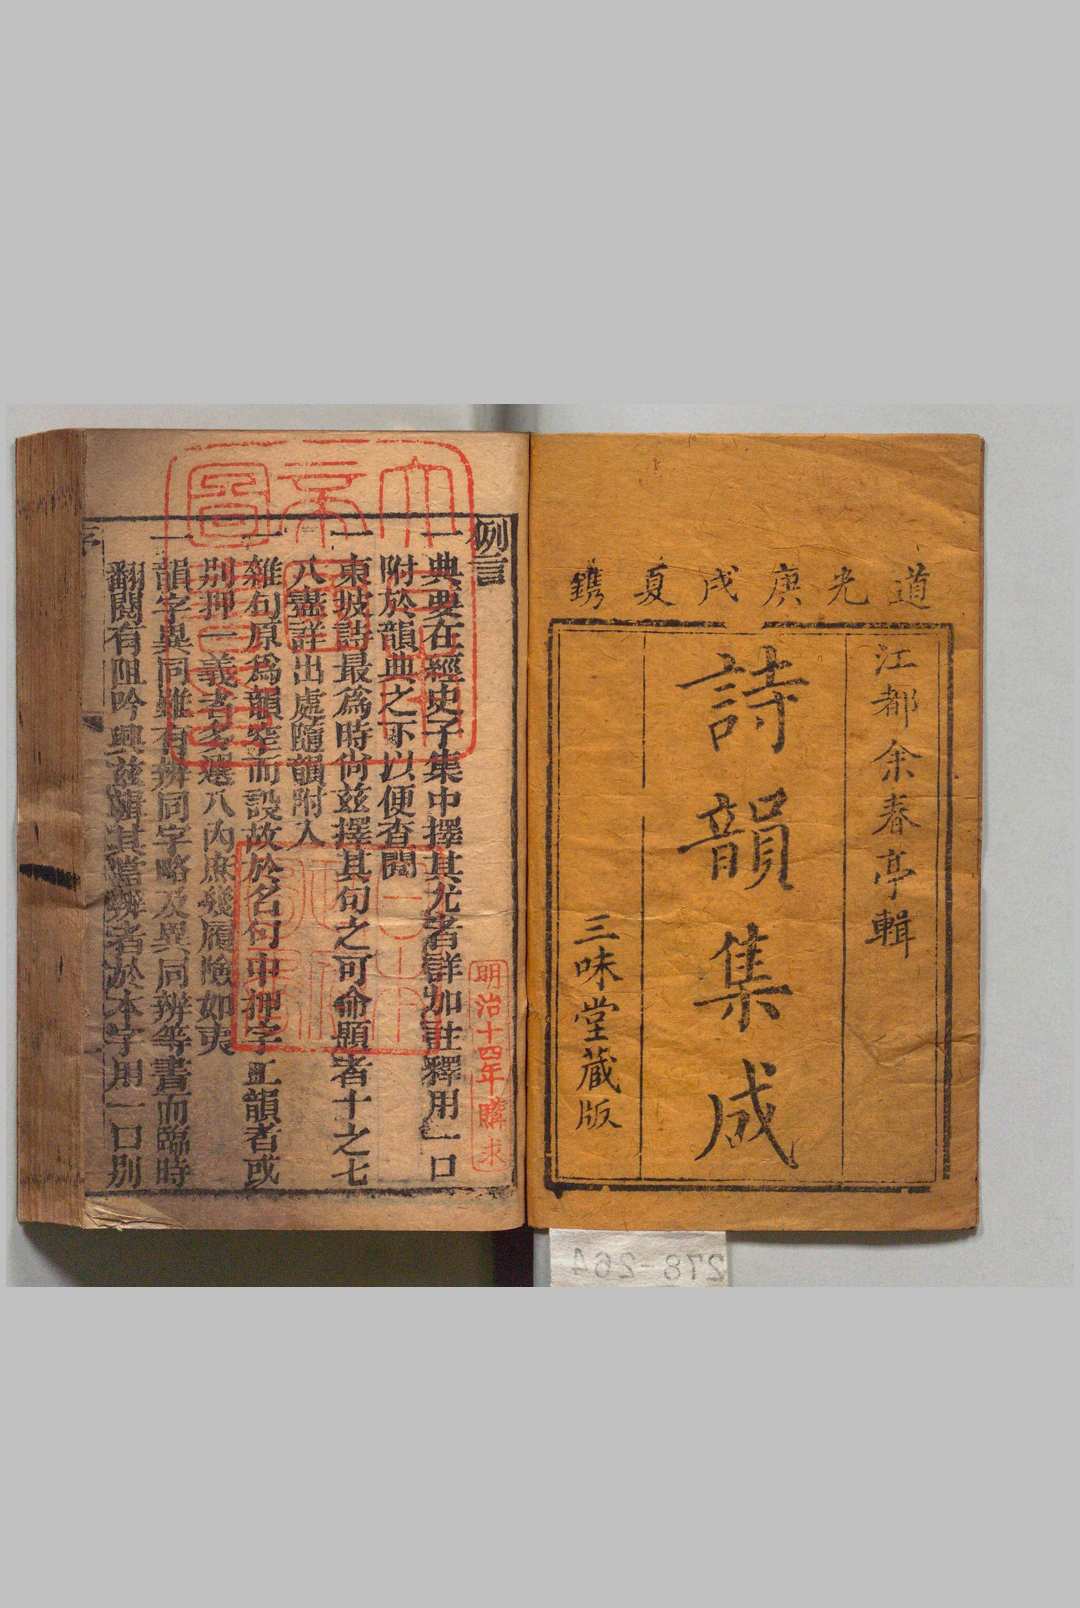 道光庚戌夏鐫
江都余春亭輯
詩韻集成
三味堂藏版
例言
一典要在經史子集中擇其尤者詳加註釋用一口
附於韻典之下以便查閱
一東坡詩最為時尚兹擇其句之可命題者十之七
八盡詳出處隨韻附入
一雜句原爲韻窄而設故於名句中押字工韻者或
別押一義者多選入內庶幾履險如夷
一韻字異同雖有辨同字略及異同辨等書而臨時
翻閱有阻吟興兹輯其當辨者於本字用一口别
明治十四年購求
278-264